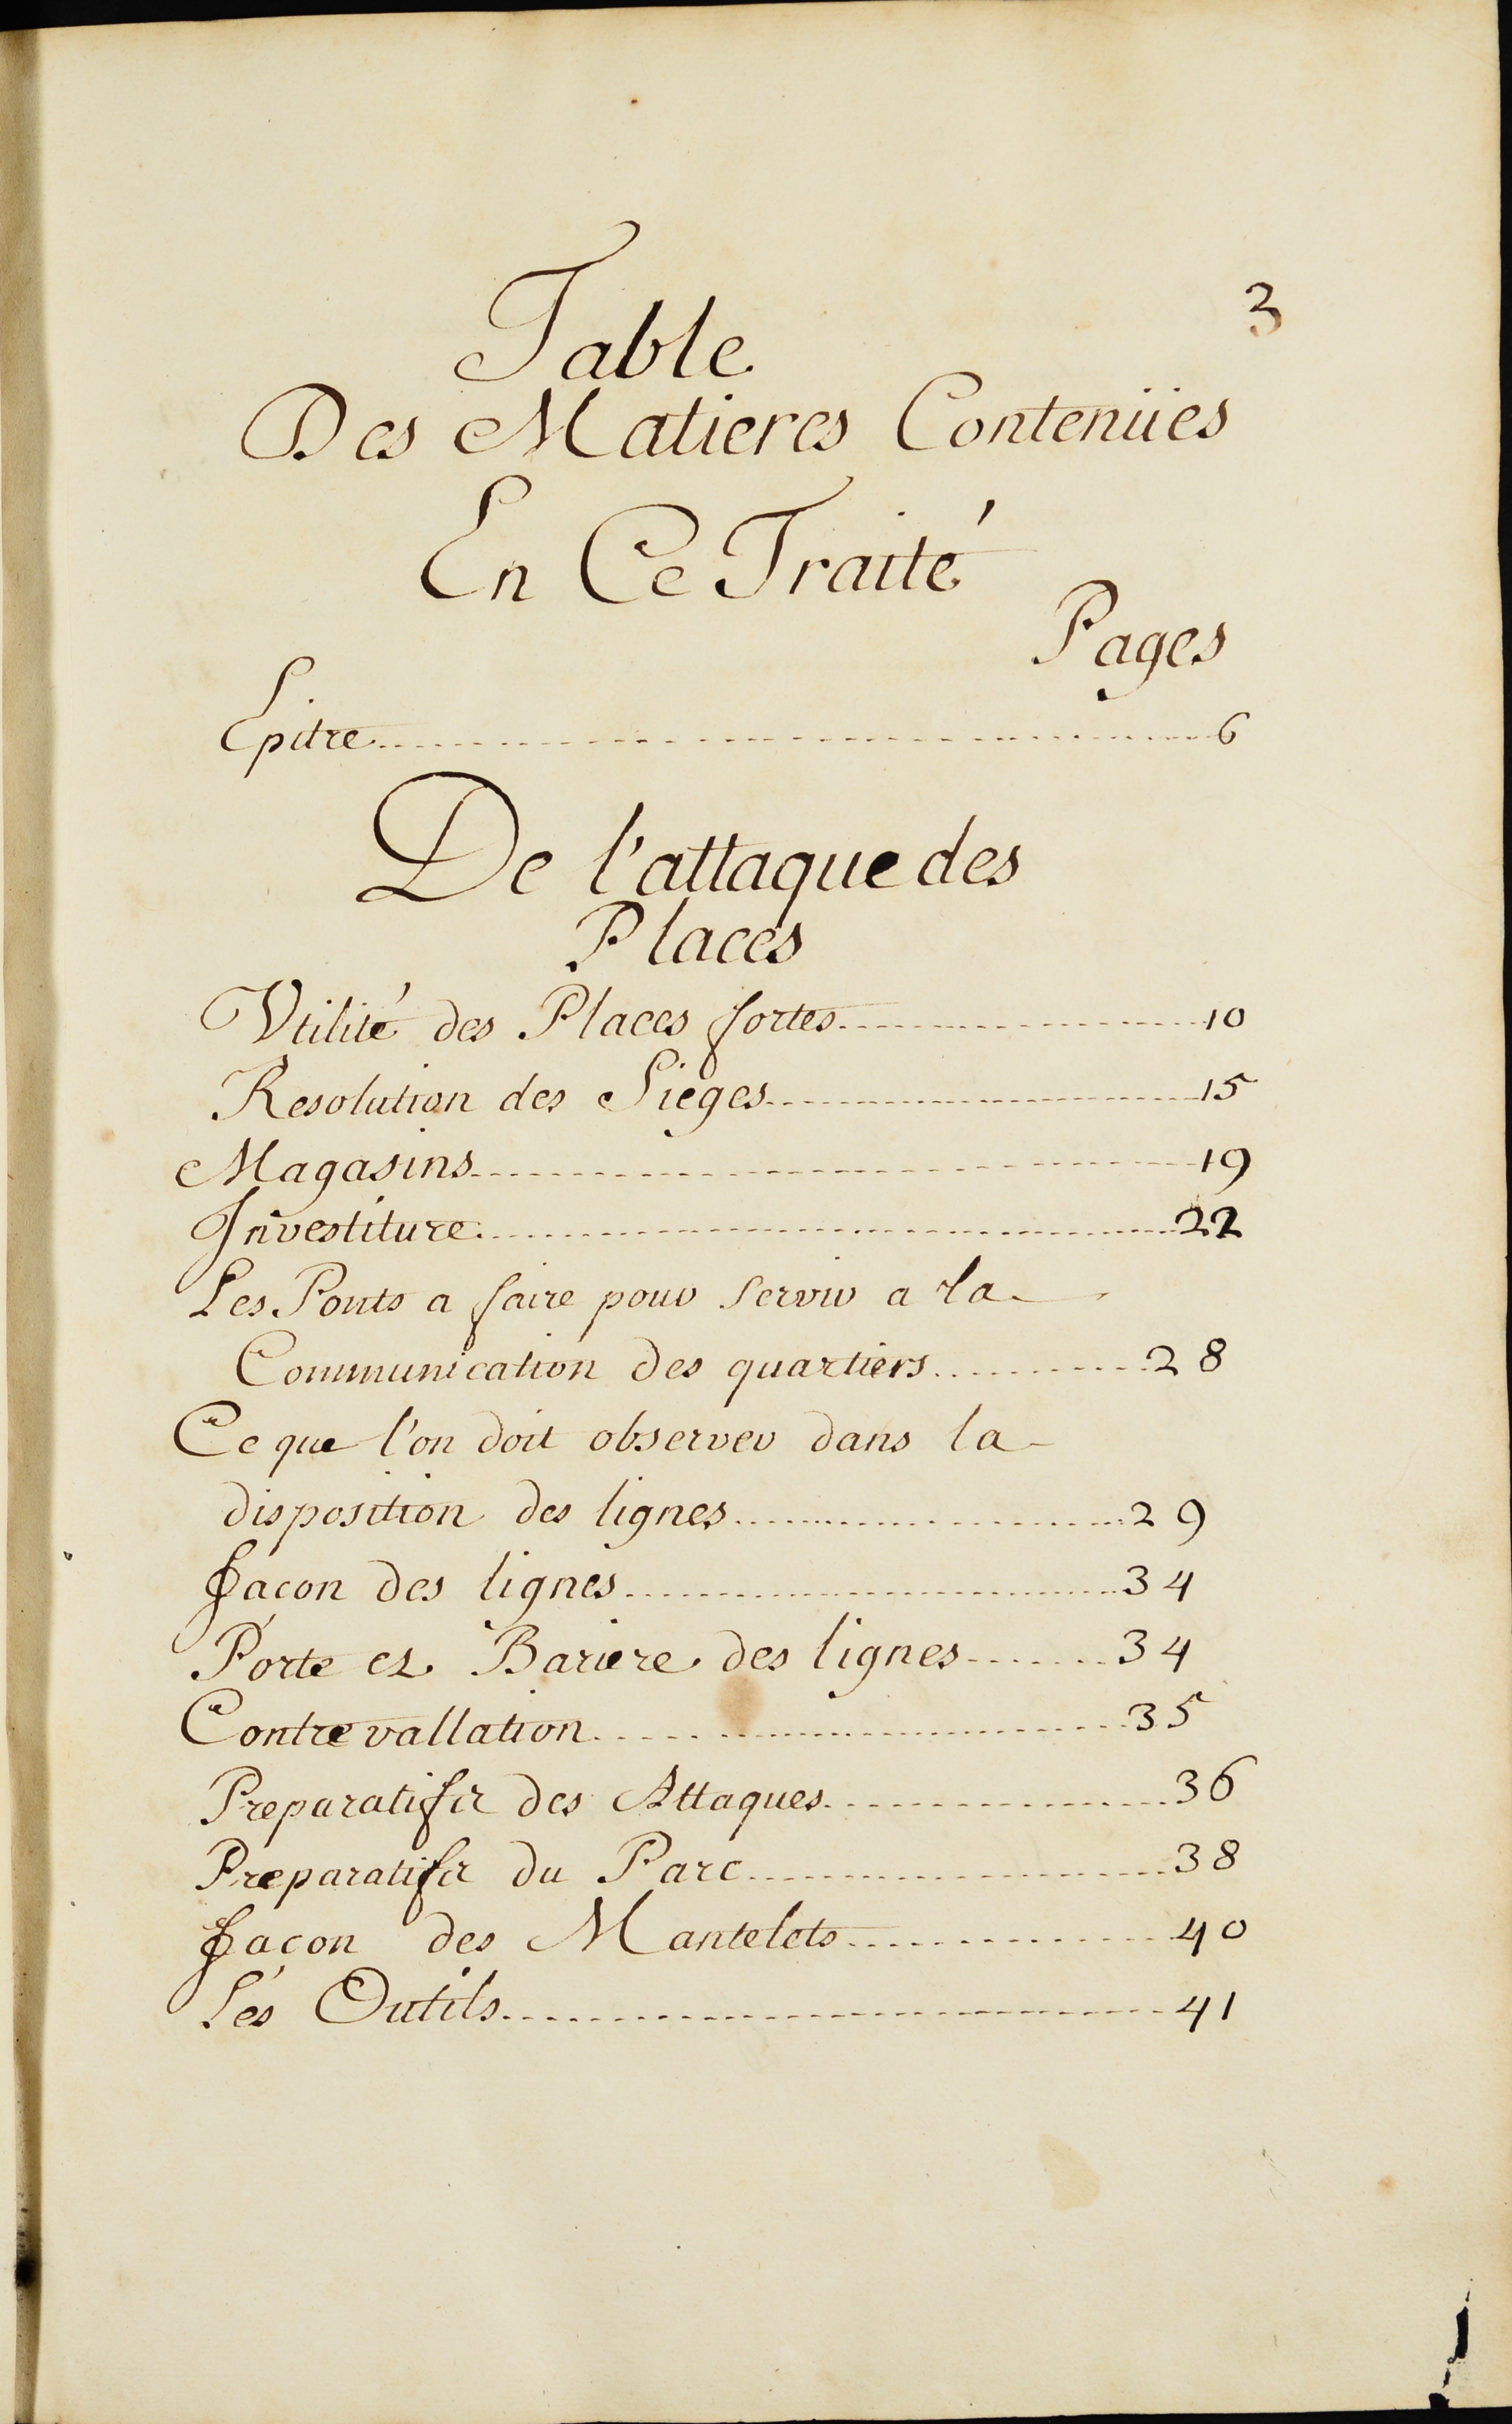 3
Table
Des Matieres Contenües
En Ce Traité
Pages
Epitre 6
De l'attaque des
Places
Vtilité des Places fortes 10
Resolution des Sieges 15
Magasins 19
Investiture 22
Les Ponts a faire pour servir a la
Communication des quartiers 28
Ce que l'on doit observer dans la
disposition des lignes 29
façon des lignes 34
Porte et Bariere des lignes 34
Contrevallation 35
Preparatifs des Attaques 36
Preparatifs du Parc 38
façon des Mantelets 40
Les Outils 41